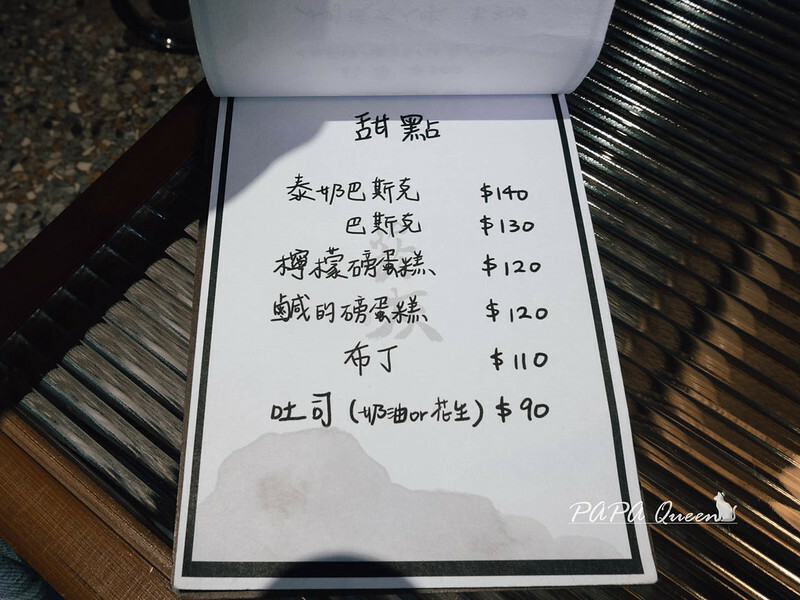 甜點
泰奶巴斯克 $140
巴斯克 $130
檸檬磅蛋糕 $120
鹹的磅蛋糕 $120
布丁 $110
吐司(奶油or花生) $90
PAPA Queen